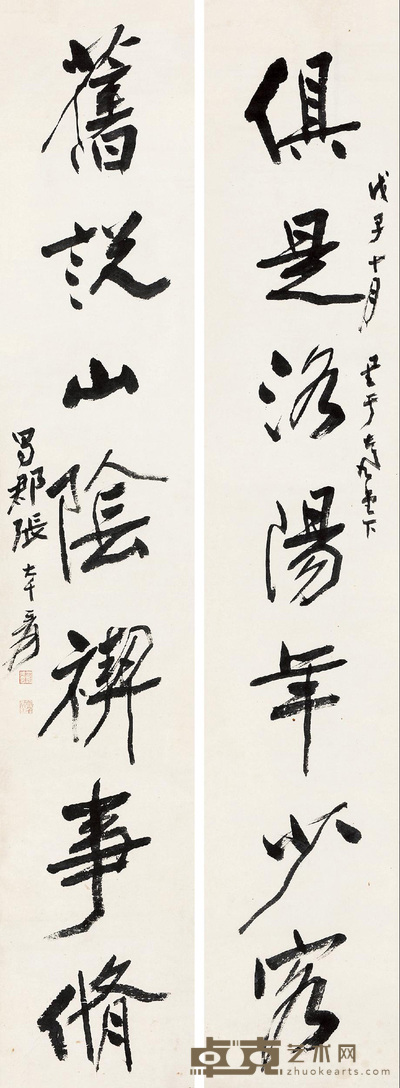 戊子十月 于大風堂下
俱是洛陽年少客
舊說山陰禊事脩
蜀郡張大千爰
卓克艺术网
zhuokearts.com